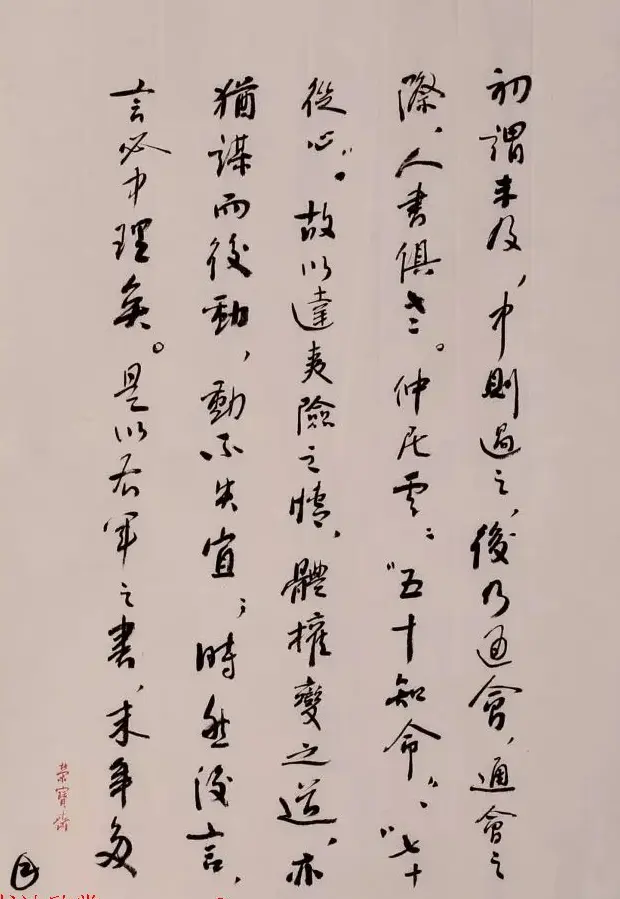 初謂未及，中則過之，後乃通會，通會之
際，人書俱老。仲尼云："五十知命"、"七十
從心"。故以達夷險之情，體權變之道，亦
猶謀而後動，動不失宜；時然後言，
言必中理矣。是以右軍之書，末年多
榮寳齋